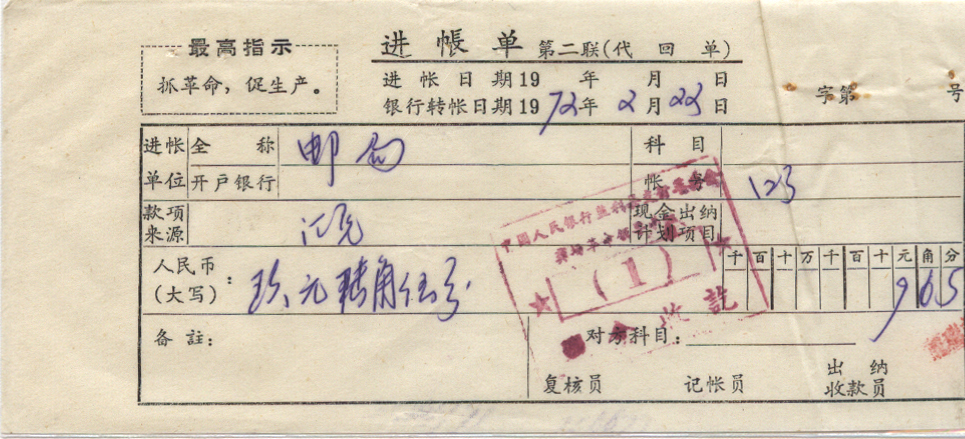 最高指示
抓革命，促生产。
进帳单 第二联(代回单)
进帐日期19 年 月 日
银行转帐日期1972年2月22日
字第 号
进帐单位
全称 邮局
开户银行
科目
帐号 123
款项来源 汇兑
现金出纳计划项目
人民币(大写)： 玖元陆角伍分
千百十万千百十元角分
965
中国人民银行
(1)
收訖
备註：
对方科目：
复核员 记帐员 出纳收款员